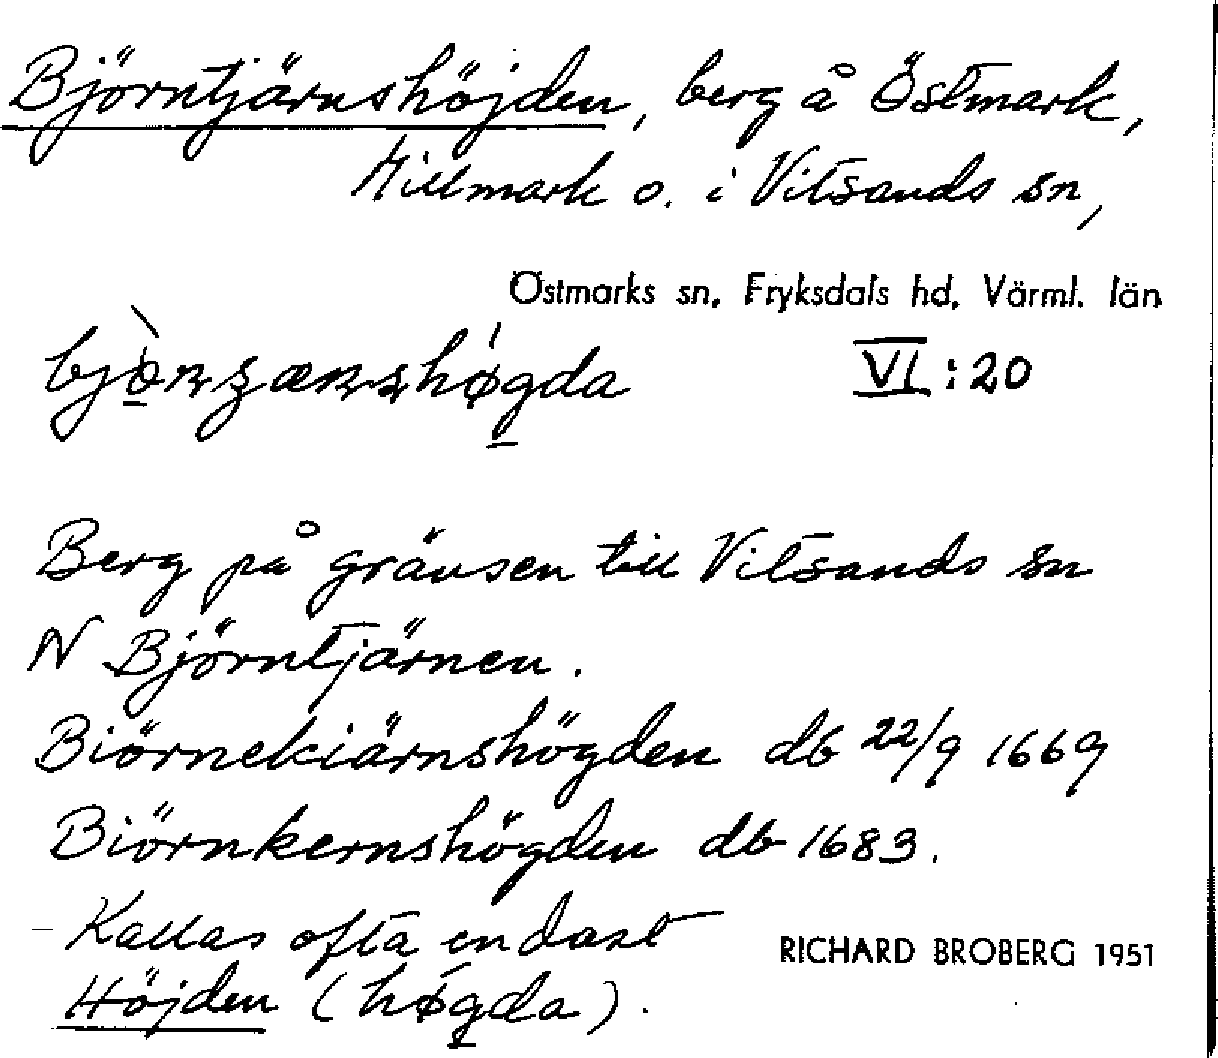 Björntjärnshöjden, berg å Östmark,
Hillmark o. i Vitsands sn,
Östmarks sn, Fryksdals hd, Värml. län
VI : 20
Berg på gränsen till Vitsands sn
N Björntjärnen.
Biörnekiärnshögden db 22/9 1669
Biörnkernshögden db 1683.
- Kallas ofta endast
RICHARD BROBERG 1951
Höjden (hø̀gda).